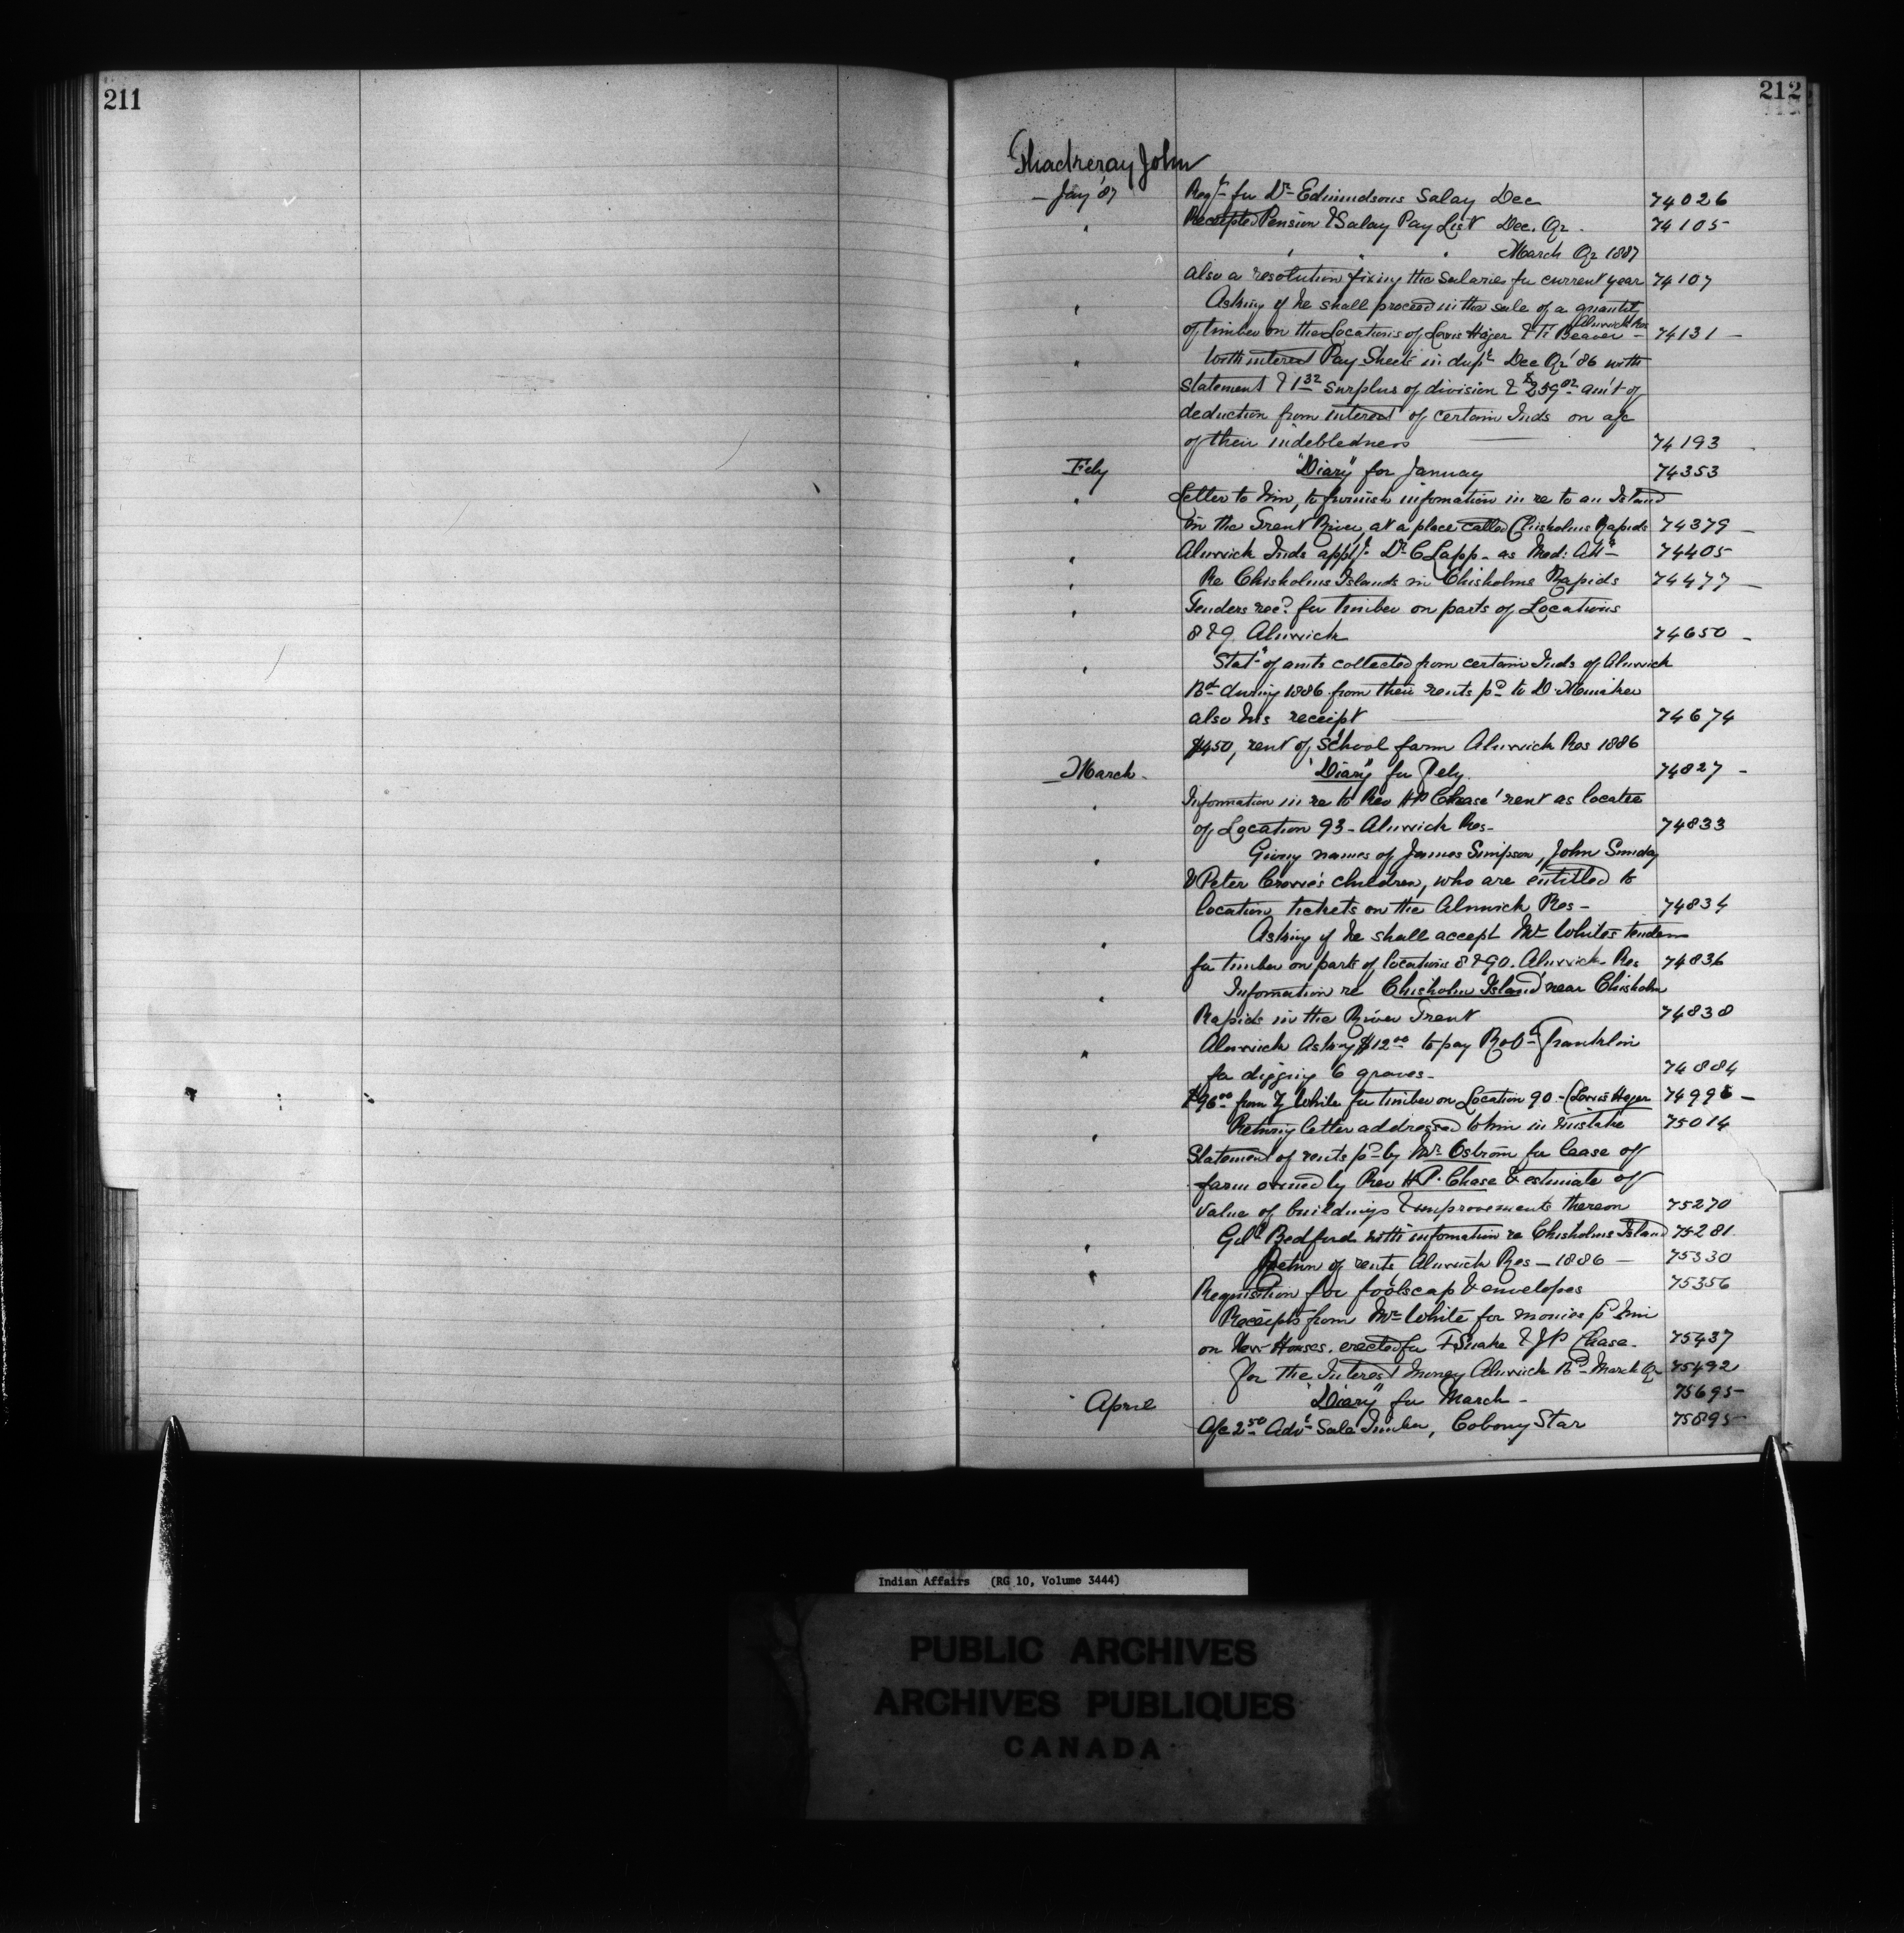 211
212
Thackeray John
Jany '87 Reqn for Dr Edmindsons Salay Dec 74026
" Receipted Pension & Salay Pay List Dec. Qr. 74105
" " " March Qr 1887
also a resolution fixing the Salaries for current year 74107
" Asking if he shall proceed in the sale of a quantity
of timber on the Locations of Lewis Hager & Ti Beaver Alnwick Res 74131 –
" With interest Pay Sheets in dupt Dec Qr '86 with
Statement & 1 32 surplus of division & $259 02 am't of
deduction from interest of certain Inds on a/c
of their indebtedness 74193
Feby "Diary" for January 74353
" Letter to him, to furnish infomation in re to an Island
in the Trent River, at a place called Chisholms Rapids 74379 –
" Alnwick Inds appt Dr C Lapp – as Med: Att 74405
" Re Chisholms Islands in Chisholms Rapids 74477 –
" Tenders recd for timber on parts of Locations
8 & 9 Alnwick 74650 –
" Statt of amts collected from certain Inds of Alnwick
Bd during 1886 from their rents pd to D.
also his receipt 74674
$450, rent of School farm Alnwick Res 1886
March – "Diary" for Feby. 74827 –
" Information in re to Rev HP Chase' rent as locatee
of Location 93 – Alnwick Res – 74833
" Giving names of James Simpson, John Sunday
& Peter Crowe's children, who are entitled to
location tickets on the Alnwick Res – 74834
" Asking if he shall accept Mr Whites tender
for timber on parts of locations 8 & 90. Alnwick Res 74836
" Infomation re Chisholm Island near Chisholm
Rapids in the River Trent 74838
" Alnwick Asking $12 00 to pay Robt Franklin
for digging 6 graves – 74884
$96 00 from White for timber on Location 90 – (Lewis Hager 74996 –
" Returng letter addressed to him in mistake 75014
Statement of rents pd by Mr Ostrom for lease of
farm owned by Rev H.P. Chase & estimate of
value of buildings & improvements thereon 75270
" Gil Bedford with infomation re Chisholms Island 75281
" Return of rents Alnwick Res – 1886 – 75330
Requisition for foolscap & envelopes 75356
Receipts from Mr White for monies pd him
on New Houses. erected for F Snake & J P Chase. 75437
for the Interest money Alnwick Bd – March Qr 75492
April "Diary" for March – 75695
A/c 2 50 Advt Sale Timber, Cobourg Star 75895
Indian Affairs (RG 10, Volume 3444)
PUBLIC ARCHIVES
ARCHIVES PUBLIQUES
CANADA